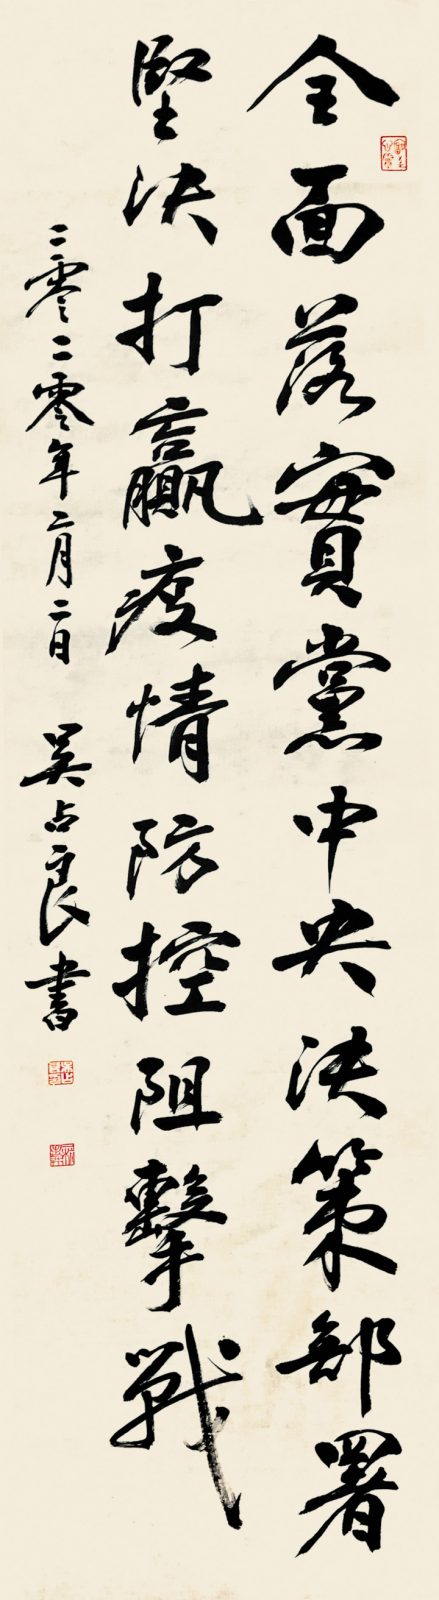 全面落實黨中央决策部署
堅决打贏疫情防控阻擊戰
二零二零年二月二日 吴占良書